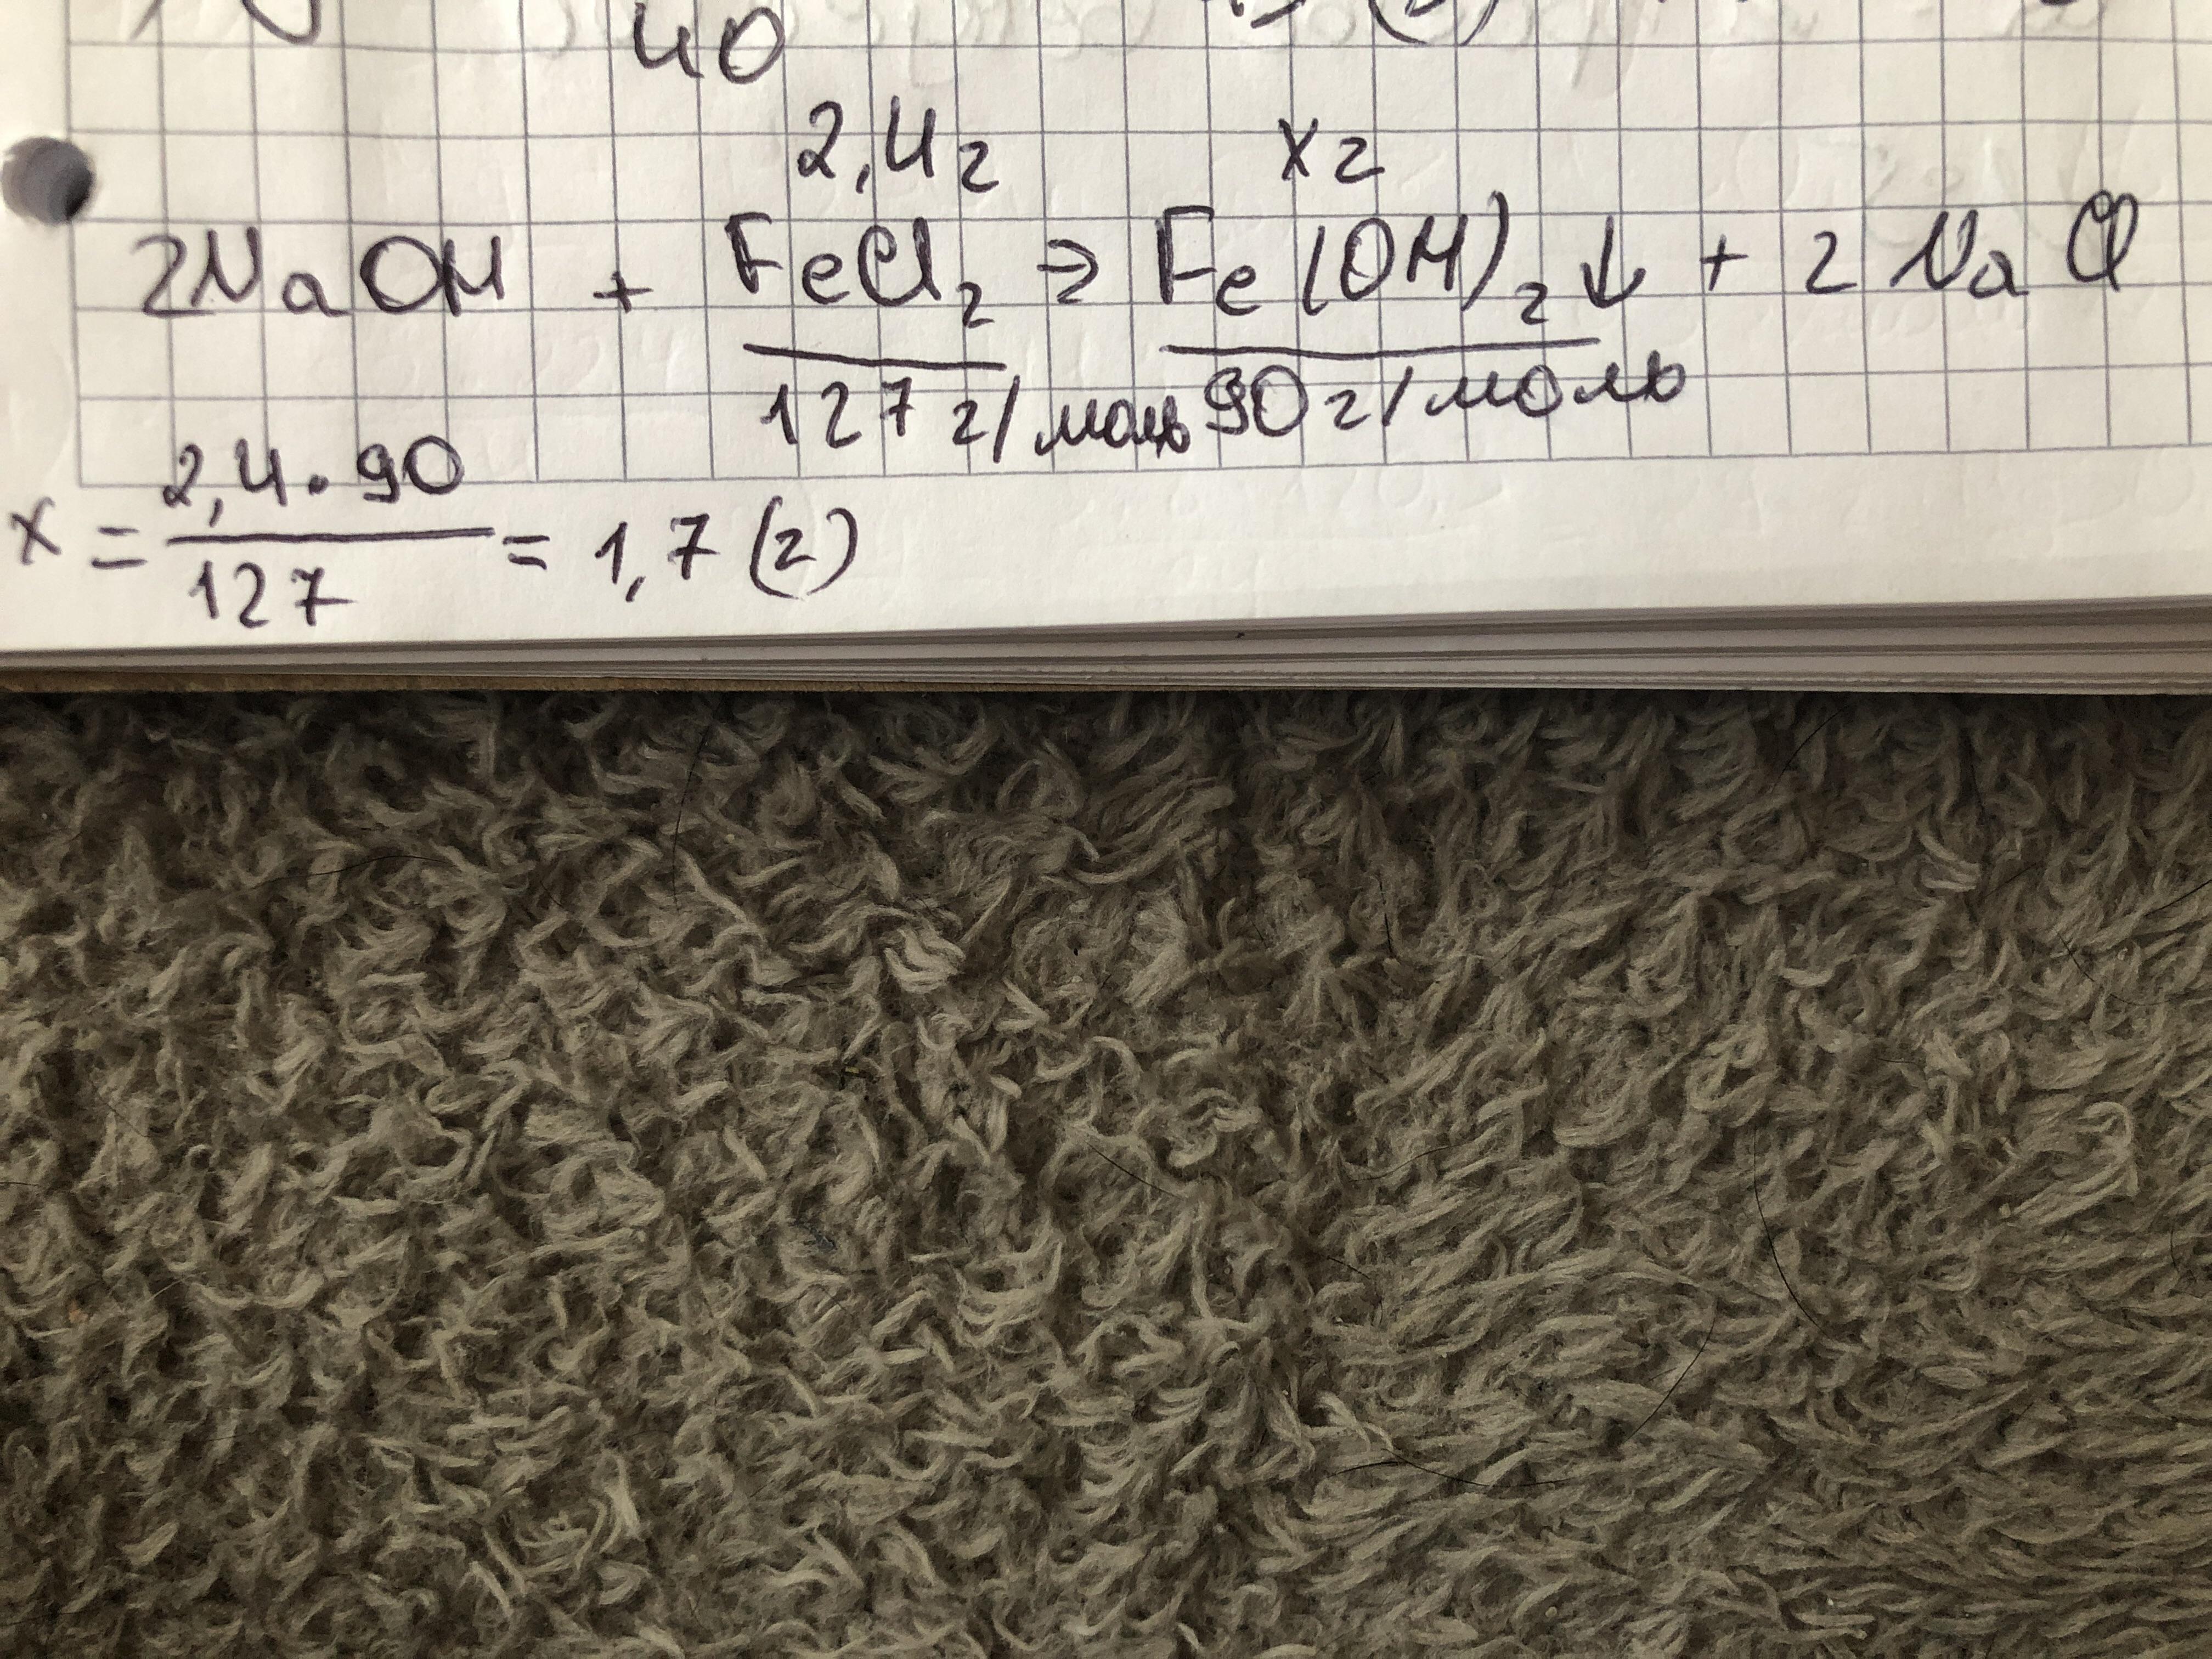 40
2,4г xг
2NaOH + FeCl₂ → Fe(OH)₂↓ + 2NaCl
127 г/моль 90 г/моль
x = 2,4·90 / 127 = 1,7 (г)